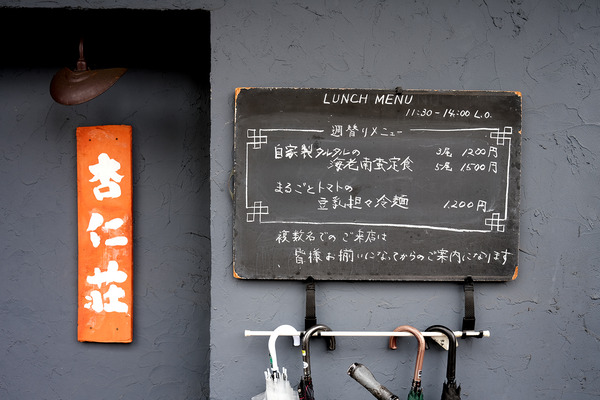 杏仁荘
LUNCH MENU
11:30-14:00 L.O.
週替りメニュー
自家製タルタルの 3尾 1200円
海老南蛮定食 5尾 1500円
まるごとトマトの
豆乳担々冷麺 1,200円
複数名でのご来店は
皆様お揃いになってからのご案内になります